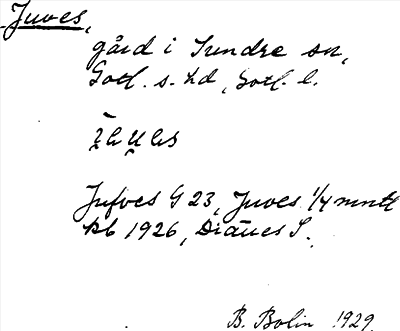 Juves,
gård i Sundre sn,
Gotl. s. hd, Gotl. l.
Jufves G 23, Juves 1/4 mntl
kb 1926, Diäues S.
B. Bolin 1929.